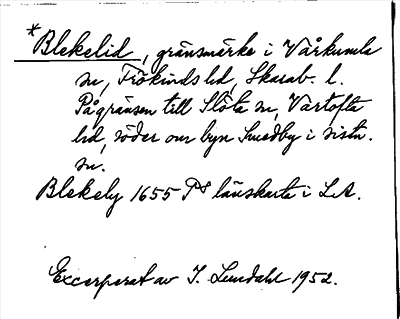 *Blekelid, gränsmärke i Vårkumla
sn, Frökinds hd, Skarab. l.
På gränsen till Slöta sn, Vartofta
hd, söder om byn Smedby i sistn.
sn.
Blekely 1655 P8 länskarta i LA.
Excerperat av I. Lundahl 1952.